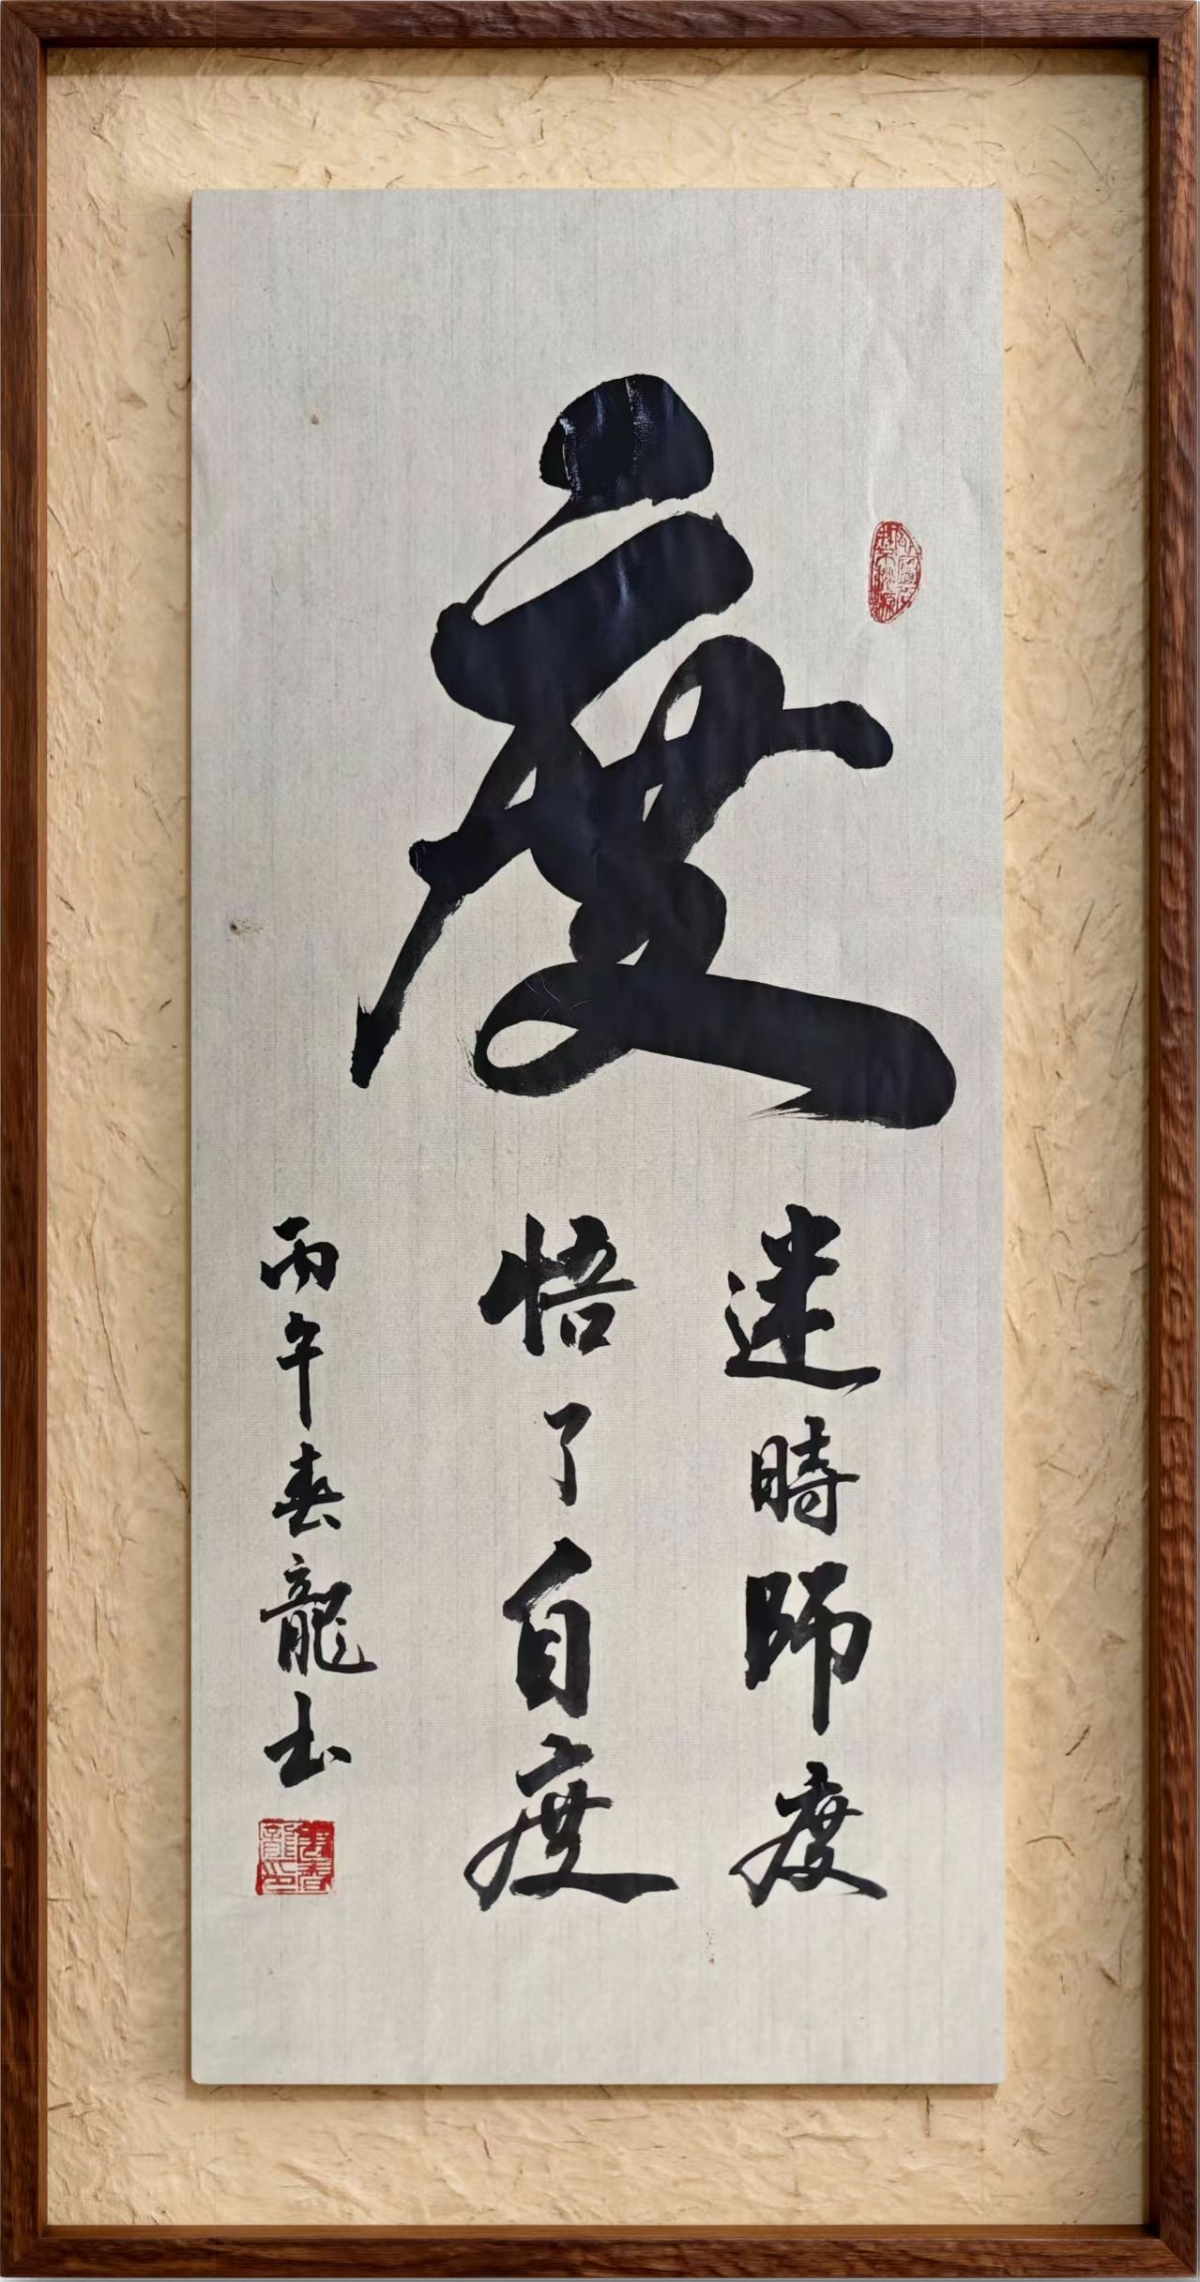 度
迷時師度
悟了自度
丙午春龍書